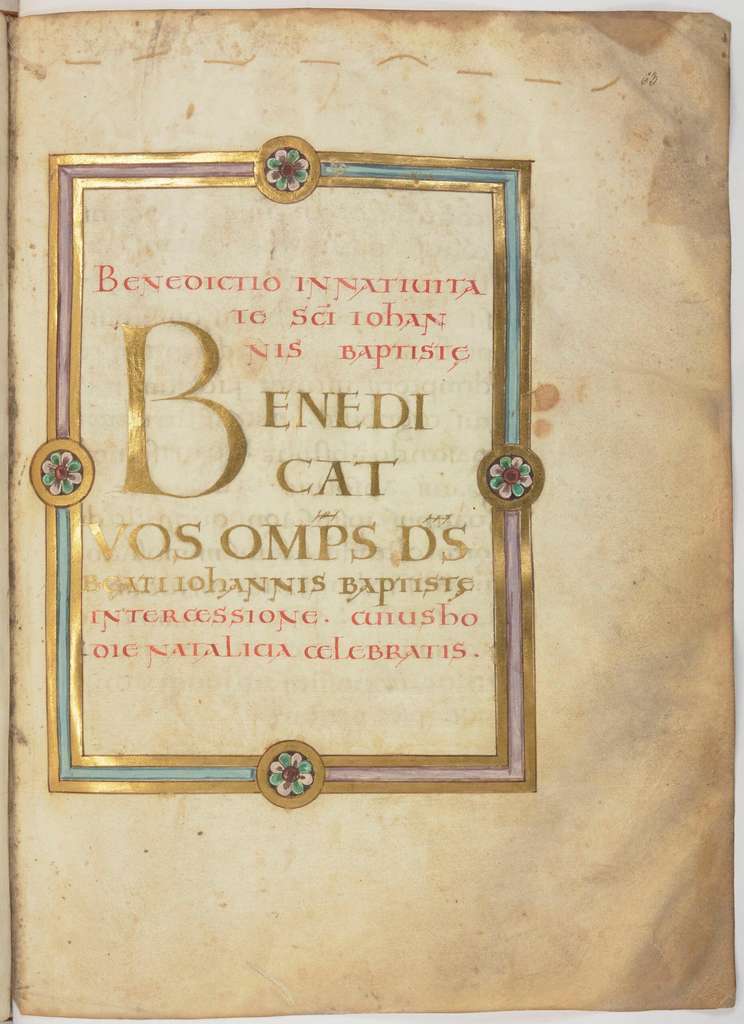 63
BENEDICTIO INNATIUITA
TE SC̄I IOHAN
NIS BAPTISTĘ
BENEDI
CAT
VOS OMP̄S D̄S
BEATI IOHANNIS BAPTISTĘ
INTERCESSIONE. CUIUS HO
DIE NATALICIA CELEBRATIS.